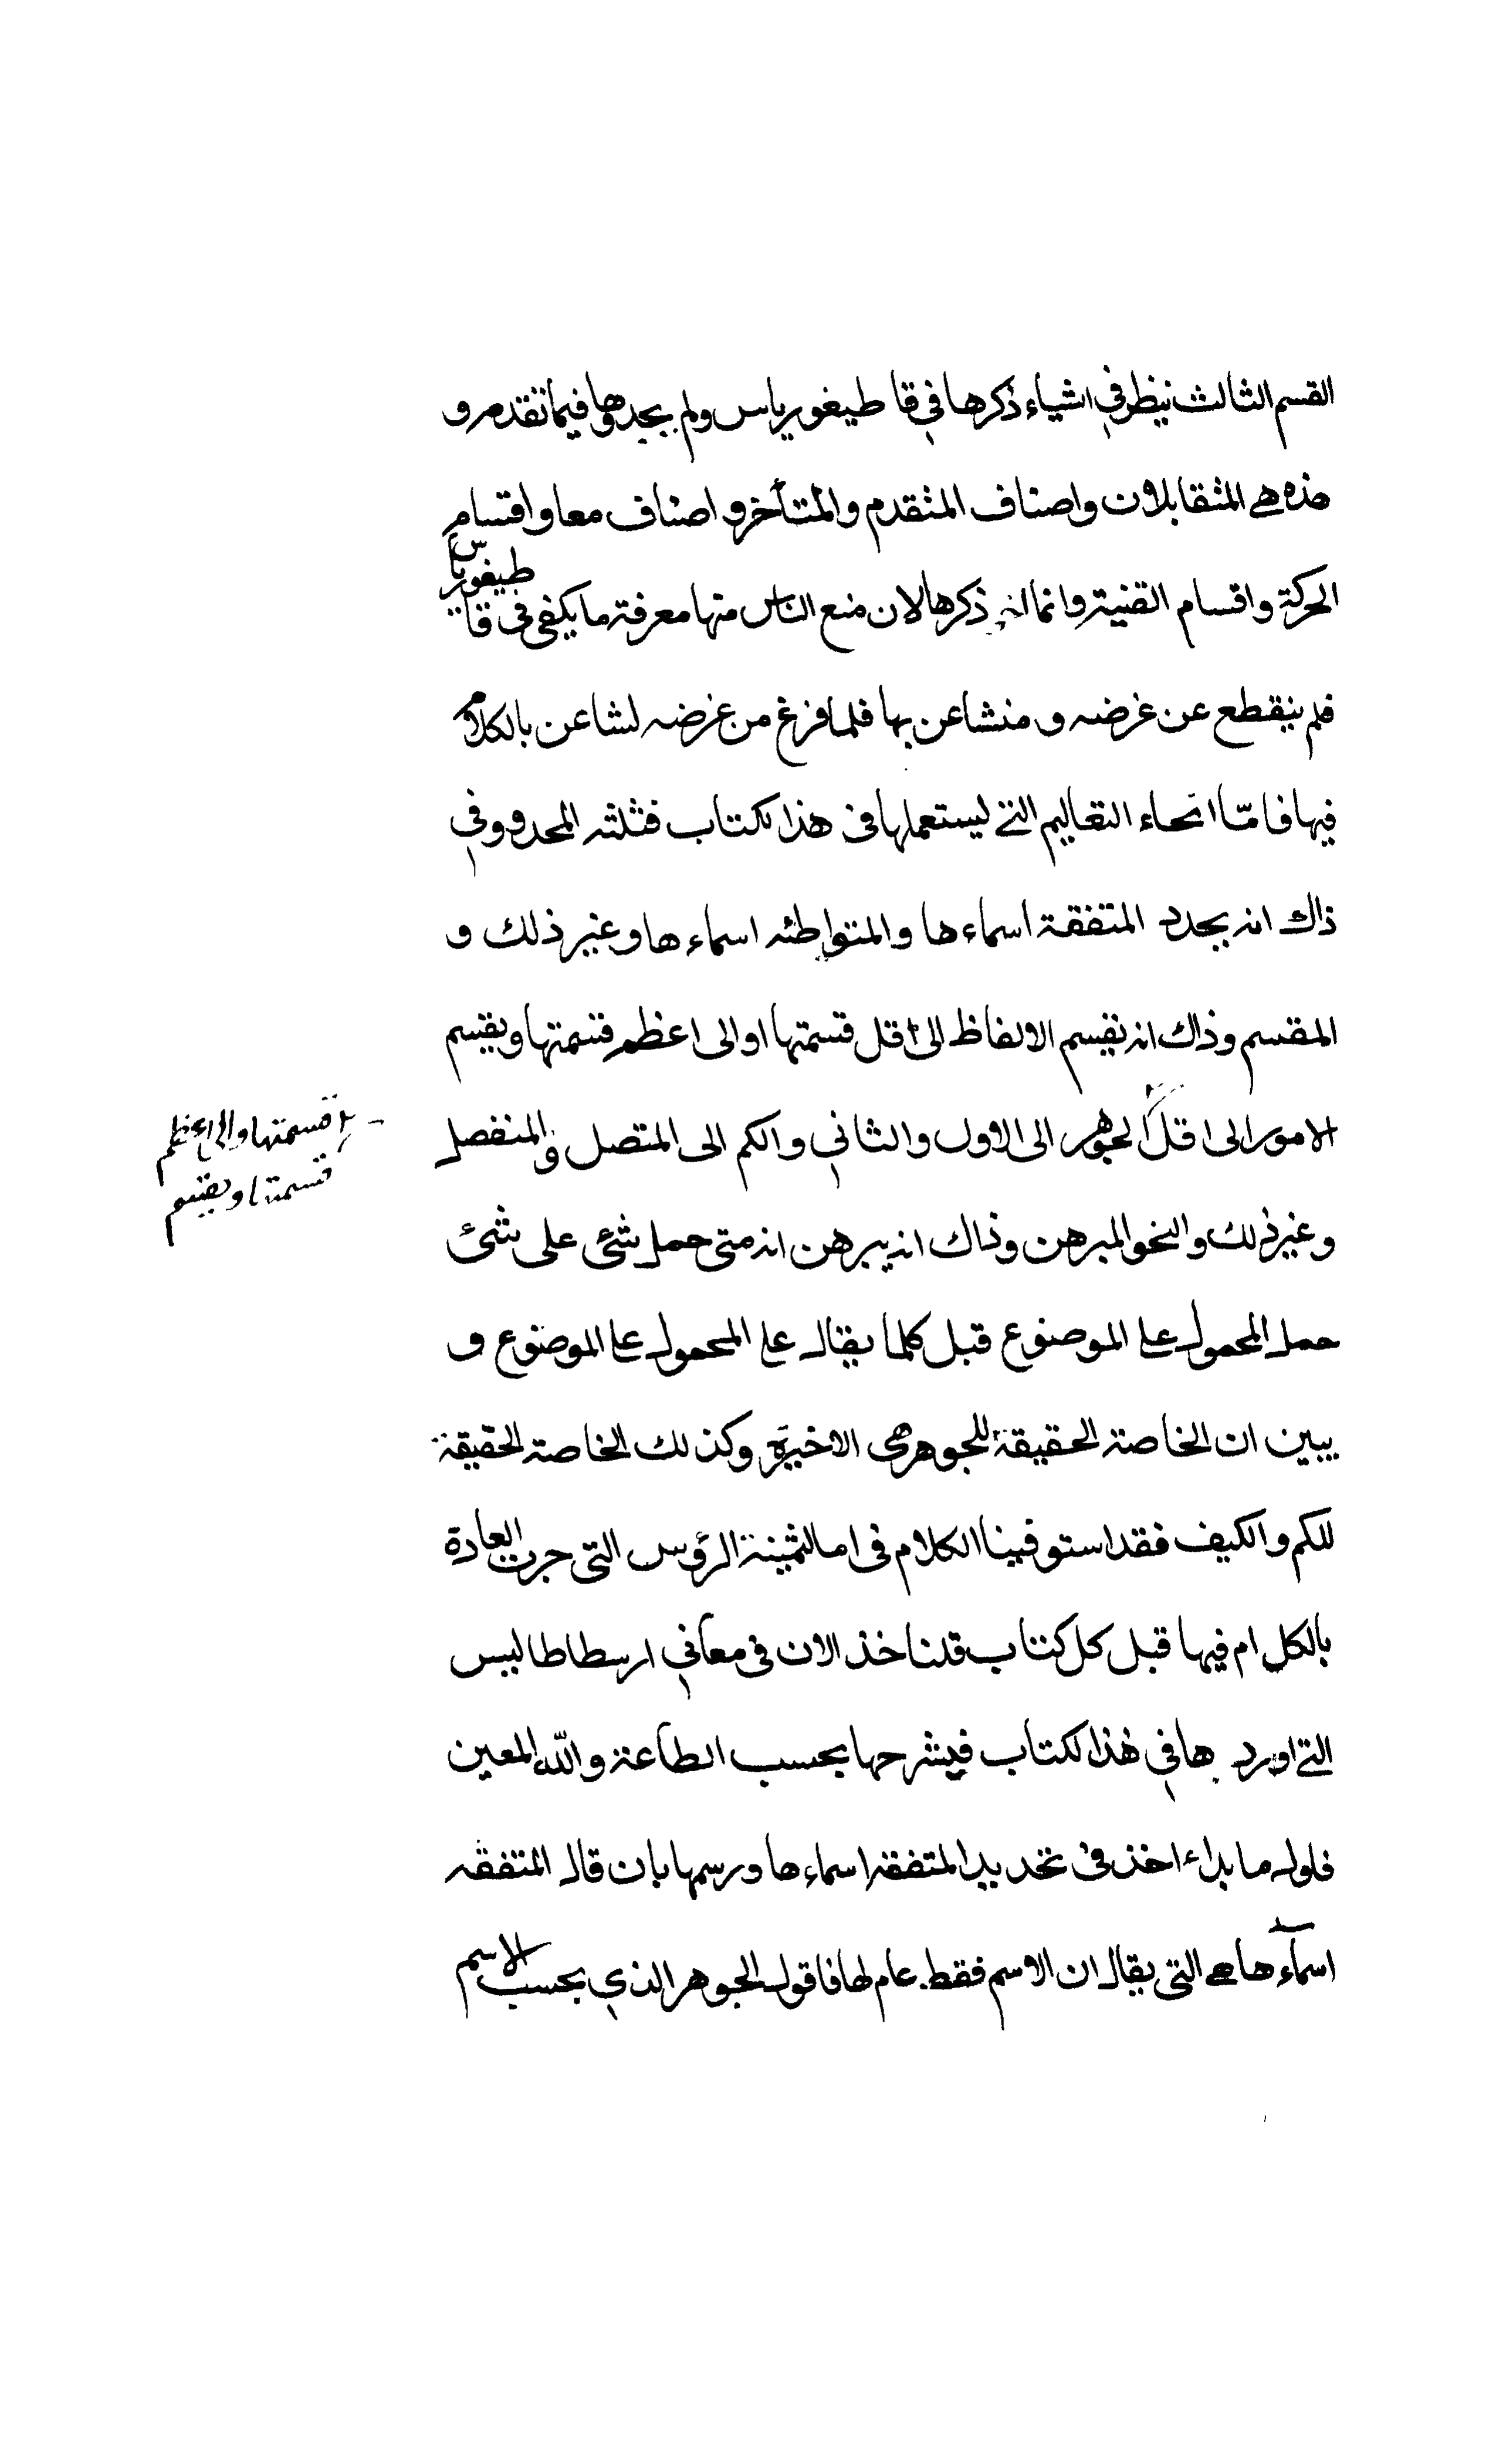 القسم الثالث ينظر في اشياء ذكرها في قا طيغورياس ولم يجدوها فيما تقدم و
هذه هي المتقابلات واصناف المتقدم والمتأخر و اصناف معا واقسام
الحركة واقسام القنية وانما ذكرها لان منع الناس منها معرفة ما يكفي في قا طيغورياس
فلم ينقطع عن غرضه و منشاعن بها فلما فرغ من غرضه لشاعن بالكلام
فيها فامّا انحاء التعاليم التي ليستعملها في هذا لكتاب فثلثه المحدو وفي
ذاك انه يحدد المتفقة اسماءها والمتواطئه اسماءها وغير ذلك و
المقسم وذاك انه يقسم الالفاظ الى اقل قسمتها او الى اعظم قسمتها ويقسم
الامور الى اقل الجوهر الى الاول والثاني والكم الى المتصل والمنفصل
قسمتها والى اعظم
قسمتها ويقسم
وغير ذلك والنحو المبرهن وذاك انه يبرهن انه متى حمل شئ على شئ
حمل المحمول على الموضوع قبل كلما يقال على المحمول على الموضوع و
يبين ان الخاصة الحقيقة للجوهر هي الاخيرة وكذلك الخاصة الحقيقة
للكم والكيف فقد استوفينا الكلام في امالثمينة الرؤس التي جرت العادة
بالكل ام فيها قبل كل كتاب قلنا خذ الان في معاني ارسطاطاليس
التي اورد ها في هذا لكتاب فيشرحها بحسب الطاعة والله المعين
فلوله ما بداء اخذ في تحديد المتفقه اسماءها ورسمها بان قال المتفقه
اسماءها هي التي يقال ان الاسم فقط عام لها فاقول الجوهر الذي بحسب الاسم